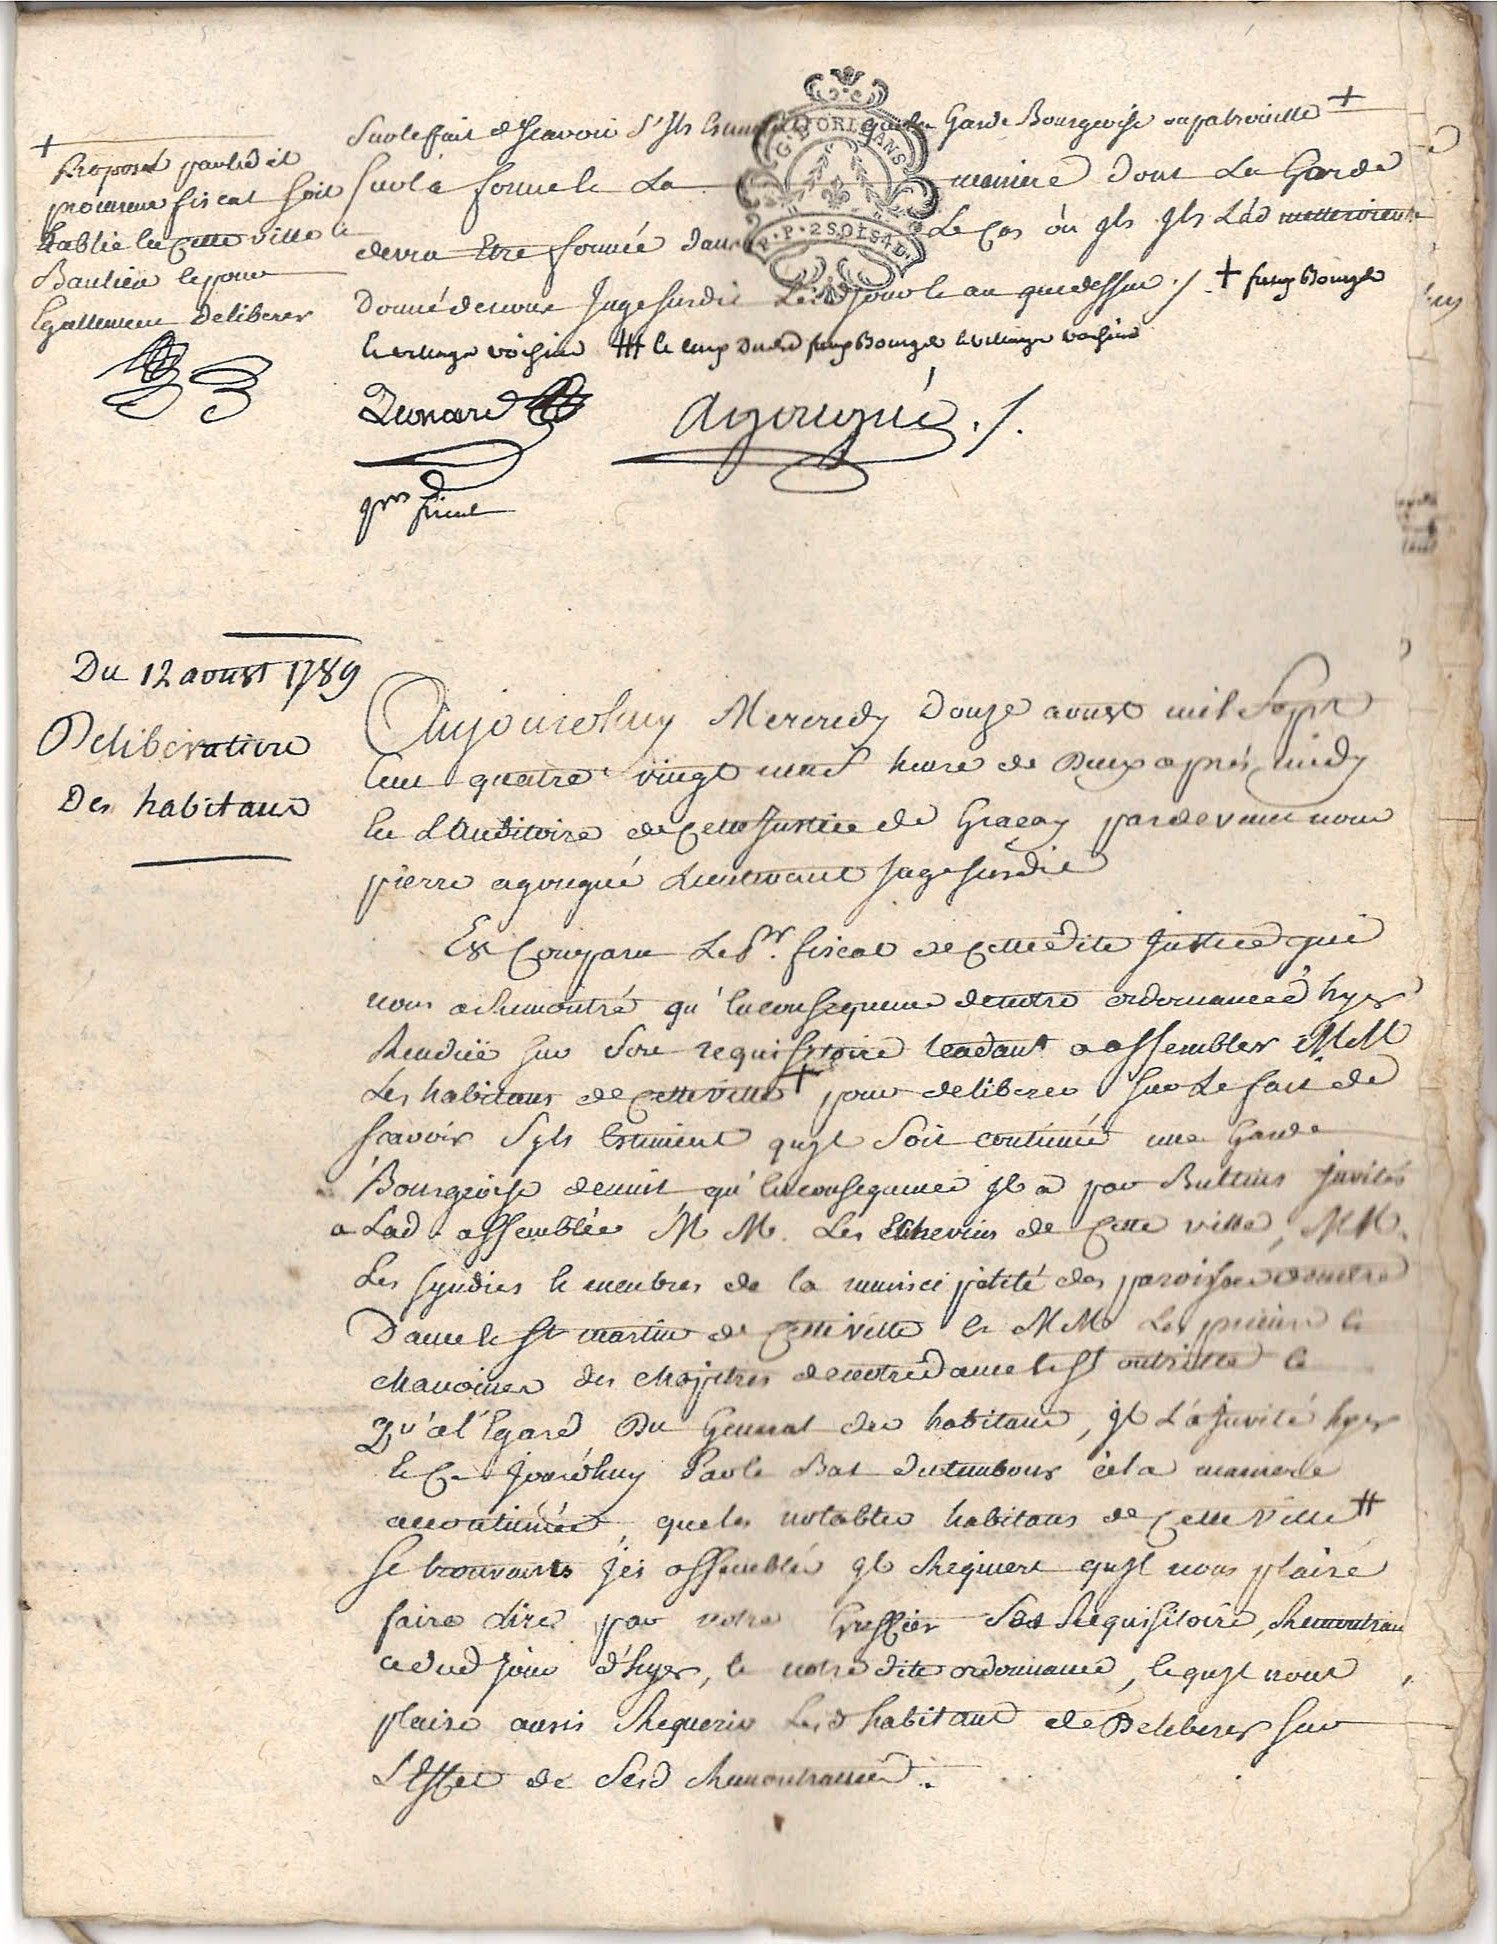 Sur le fait de scavoir s'ils estiment que la Garde Bourgeoise ou patrouille +
sur la forme et la maniere dont la Garde
devra Etre formée dans Le Cas où jls jls L'ad mettroient
Donné de nous Juge susdit Lesd jour et an que dessus ./. + fauxBourgs
et village voisins ### et ceux dud fauxBourgs et village voisins
+
Proposé par led it
procureur fiscal soit
Etablie En Cette ville
Banlieu et pour
Egallement Deliberer
Agougué ./.
pr fiscal
G. D'ORLEANS
P.P. 2 SOLS 4 D.
Du 12 aoust 1789
Deliberation
Des habitans
Aujourdhuy Mercredy Douze aoust mil Sept
Cent quatre vingt neuf heure de Deux aprés midy
En L'Auditoire de Cette Justice de Graçay pardevant nous
pierre agougué Lieutenant Juge susdit
Est Comparu Le Pr. fiscal de Cettedite Justice qui
nous a Remontré qu'En consequence de notre ordonnance d'hyer
Rendüe sur Son requisitoire tendant a assembler MM
Les habitans de Cette ville + pour deliberer sur Le fait de
scavoir S'yls Estiment qu'jl Soit continué une Garde
Bourgeoise de nuit qu'En consequence jl a par Bulttins jnvités
a Lad. assemblée M M. Les Echevins de Cette ville, MM.
Les syndics et membres de la municipalité des paroisses de notre
Dame et St martin de Cette ville et MM Les prieur et
chanoines des chapitres de notre Dame et St outrille et
Qu'a l'Egard Du General des habitans, jl l'a jnvité hyer
et Ce Jourdhuy Par le Bat du tambour a la maniere
accoutumée, que les notables habitans de Cette Ville ++
se trouvants jci assemblés jl Requiert qu'jl nous plaise
faire Lire par notre Greffier Ses Requisitoire, Remontrance
dud jour d'hyer, et notre dite ordonnance, et qu'jl nous
plaise aussi Requerir Lesd habitans de Deliberer sur
L'Effet de Sesd Remontrances.